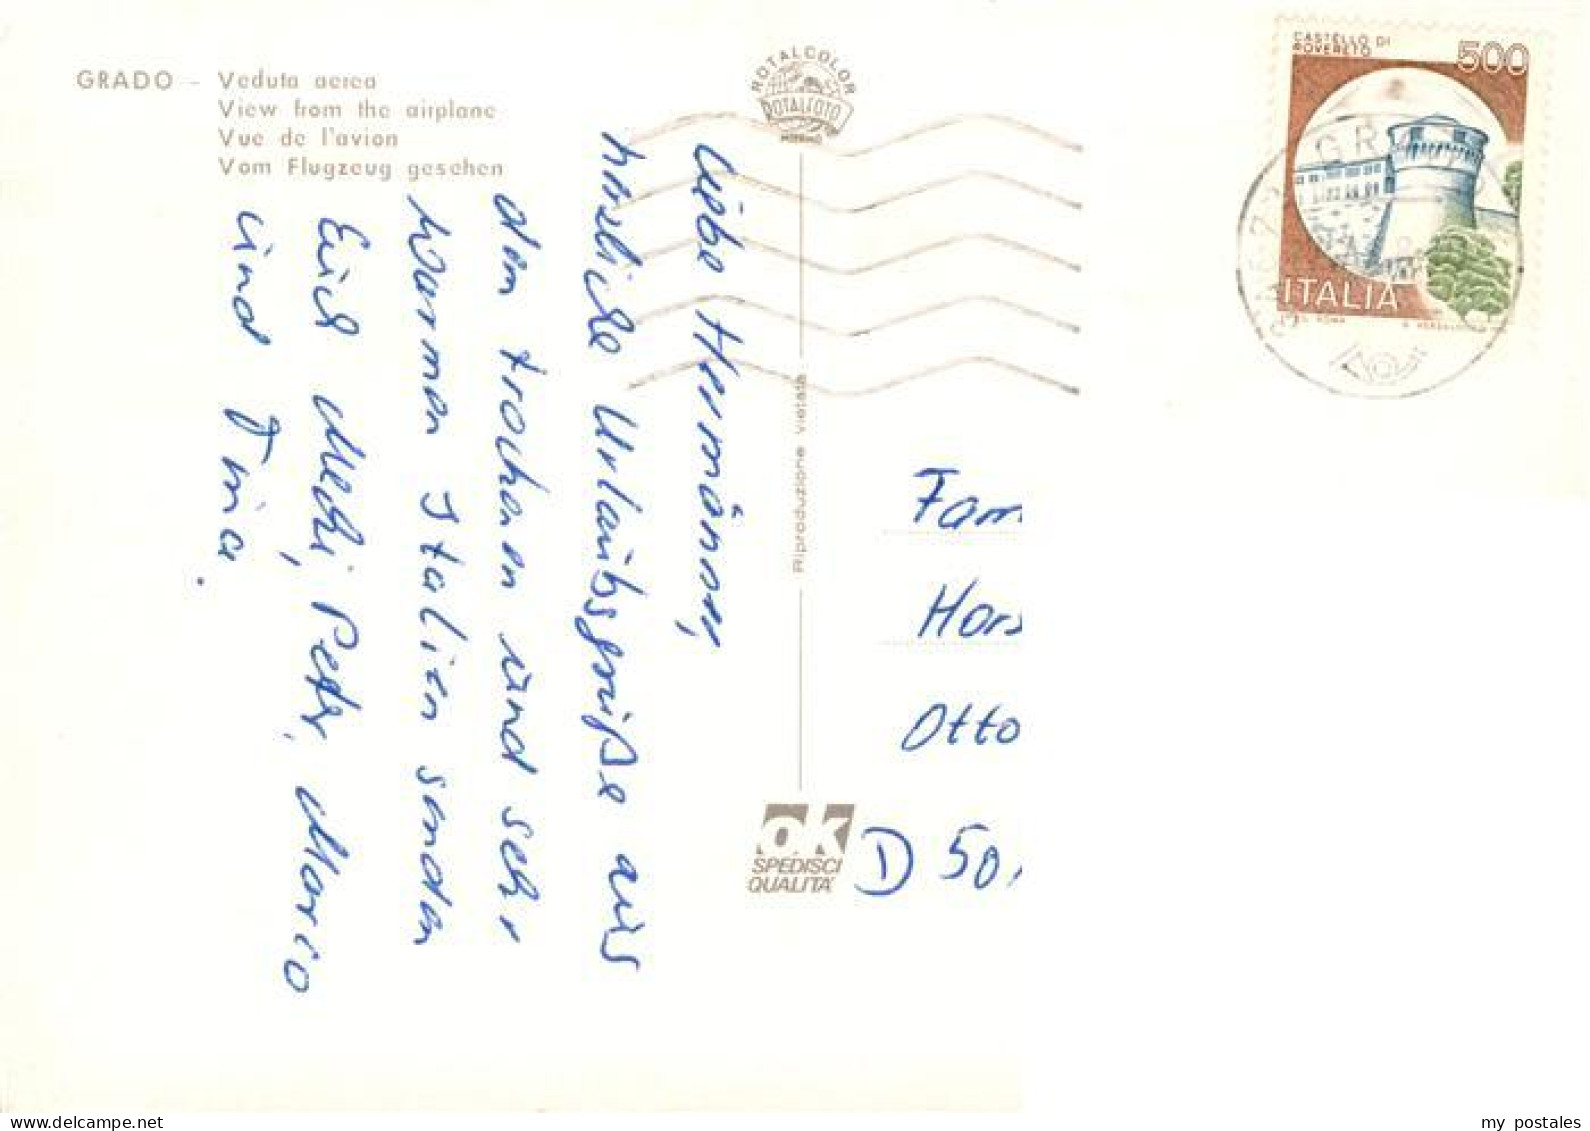 GRADO - Veduta aerea
View from the airplane
Vue de l'avion
Vom Flugzeug gesehen
ROTALCOLOR
ROTALFOTO
MILANO
CASTELLO DI
ROVERETO
500
ITALIA
Liebe Hermänner,
herzliche Urlaubsgrüße aus
dem trockenen und sehr
warmen Italien senden
Euch Mecki, Peter, Marico
und Tina.
Riproduzione vietata
Fam
Hors
Otto
D 50
ok
SPEDISCI
QUALITÀ
my postales